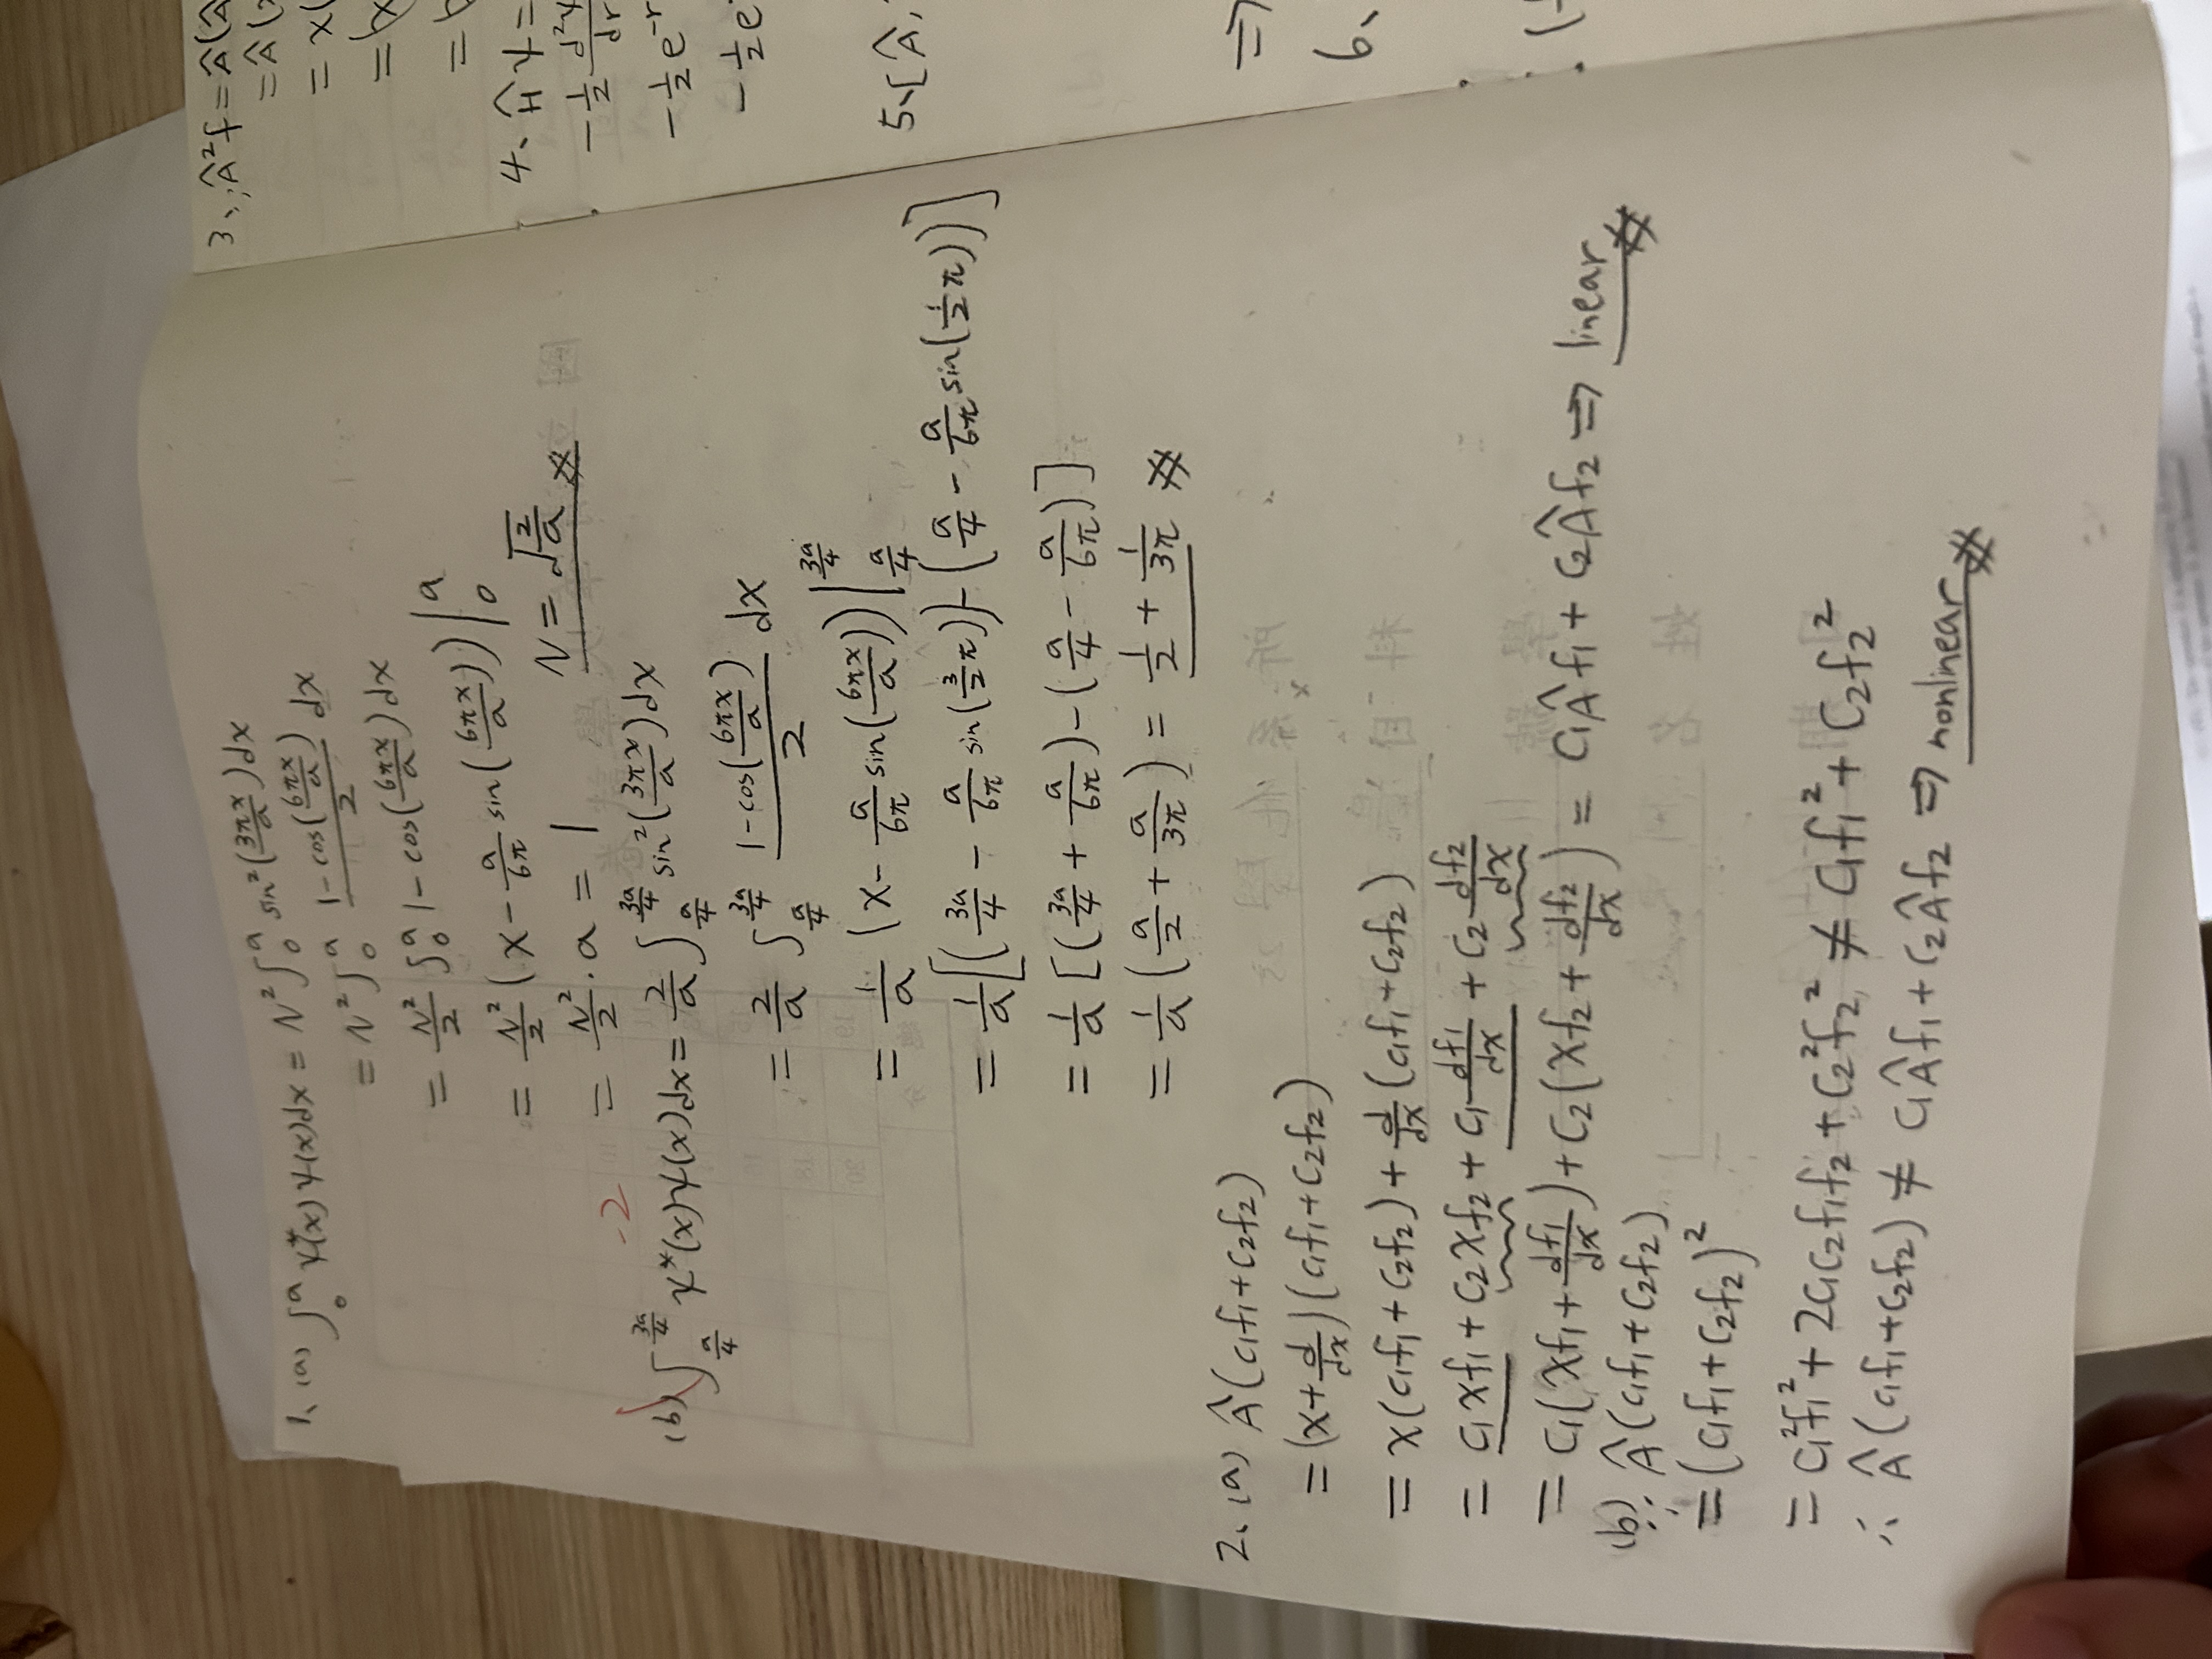 1、(a) ∫₀ᵃ ψ*(x) ψ(x)dx = N² ∫₀ᵃ sin²(3πx/a)dx
= N² ∫₀ᵃ (1-cos(6πx/a))/2 dx
= N²/2 ∫₀ᵃ 1-cos(6πx/a)dx
= N²/2 (x - a/6π sin(6πx/a))|₀ᵃ
= N²/2 · a = 1 N = √(2/a)
-2
(b) ∫_{a/4}^{3a/4} ψ*(x)ψ(x)dx = 2/a ∫_{a/4}^{3a/4} sin²(3πx/a)dx
= 2/a ∫_{a/4}^{3a/4} (1-cos(6πx/a))/2 dx
= 1/a (x - a/6π sin(6πx/a))|_{a/4}^{3a/4}
= 1/a [(3a/4 - a/6π sin(3/2 π)) - (a/4 - a/6π sin(1/2 π))]
= 1/a [(3a/4 + a/6π) - (a/4 - a/6π)]
= 1/a (a/2 + a/3π) = 1/2 + 1/3π
2、(a) Â(c₁f₁+c₂f₂)
= (x+d/dx)(c₁f₁+c₂f₂)
= x(c₁f₁+c₂f₂)+d/dx(c₁f₁+c₂f₂)
= c₁xf₁+c₂xf₂+c₁ df₁/dx + c₂ df₂/dx
= c₁(xf₁+df₁/dx)+c₂(xf₂+df₂/dx) = c₁Âf₁+c₂Âf₂ ⇒ linear
(b)
∵ Â(c₁f₁+c₂f₂)
= (c₁f₁+c₂f₂)²
= c₁²f₁²+2c₁c₂f₁f₂+c₂²f₂² ≠ c₁f₁²+c₂f₂²
∴ Â(c₁f₁+c₂f₂) ≠ c₁Âf₁+c₂Âf₂ ⇒ nonlinear
3、∵ Â²f = Â(Â
= Â(
= x(
= (x
=
4、Ĥψ =
-1/2 d²ψ/dr
-1/2 e^-r
-1/2 e
5、[Â,
⇒
6、